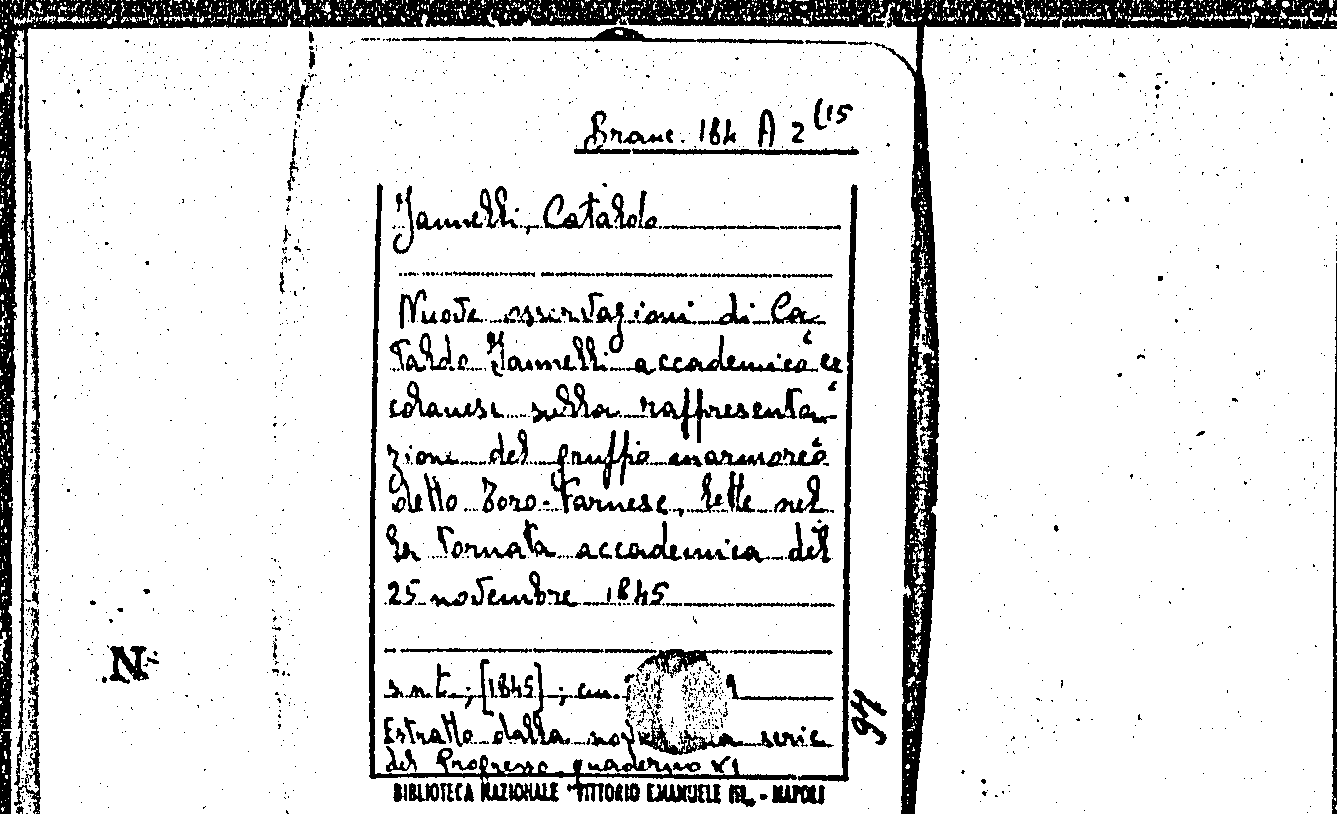 Branc. 184 A 2 (15
Jannelli, Cataldo
Nuove osservazioni di Ca-
taldo Jannelli accademico er
colanese sulla rappresenta-
zione del gruppo marmoreo
detto Toro-Farnese, lette nel
la tornata accademica del
25 novembre 1845
s.n.t.; [1845]; cm.
Estratto dalla serie
del Progresso quaderno XI
BIBLIOTECA NAZIONALE "VITTORIO EMANUELE III„ - NAPOLI
N.